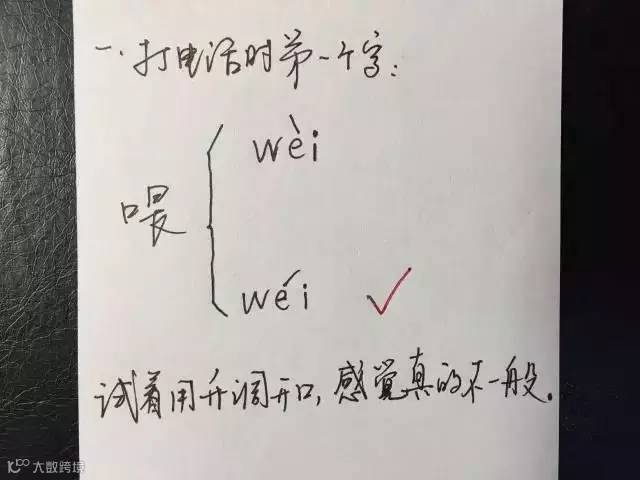 一.打电话时第一个字:
wèi
喂
wéi ✓
试着用升调开口,感觉真的不一般。
大数跨境